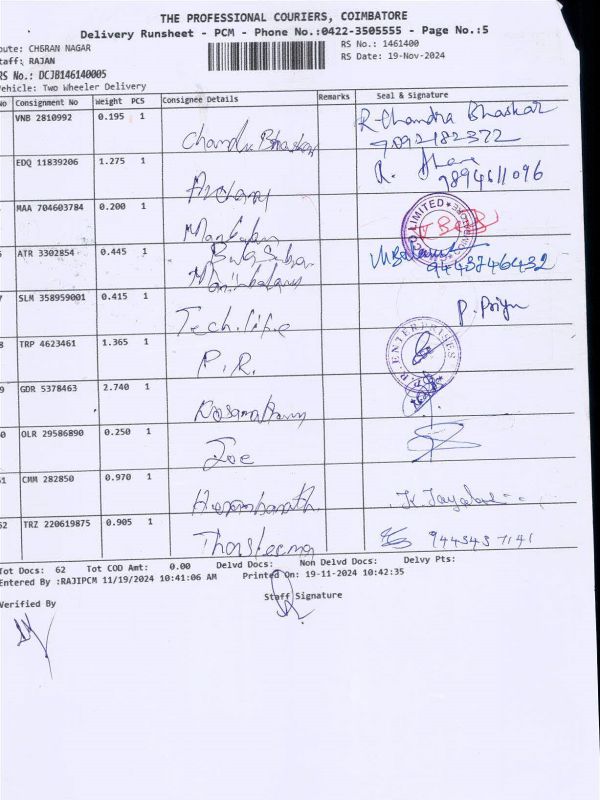 THE PROFESSIONAL COURIERS, COIMBATORE
Delivery Runsheet - PCM - Phone No.:0422-3505555 - Page No.:5
oute: CHERAN NAGAR
RS No.: 1461400
taff: RAJAN
RS Date: 19-Nov-2024
RS No.: DCJB146140005
ehicle: Two Wheeler Delivery
No Consignment No Weight PCS Consignee Details Remarks Seal & Signature
VNB 2810992 0.195 1 R. Chandra Bhaskar
7092182372
EDQ 11839206 1.275 1 R.
7894611096
MAA 704603784 0.200 1 LIMITED
ATR 3302854 0.445 1
9443746432
SLM 358959001 0.415 1 Tech.life P. Priya
8 TRP 4623461 1.365 1 P.R. ENTERPRISES
9 GDR 5378463 2.740 1
0 OLR 29586890 0.250 1 Joe
61 CMM 282850 0.970 1
62 TRZ 220619875 0.905 1 9443437141
Tot Docs: 62 Tot COD Amt: 0.00 Delvd Docs: Non Delvd Docs: Delvy Pts:
Entered By :RAJIPCM 11/19/2024 10:41:06 AM Printed On: 19-11-2024 10:42:35
Verified By Staff Signature